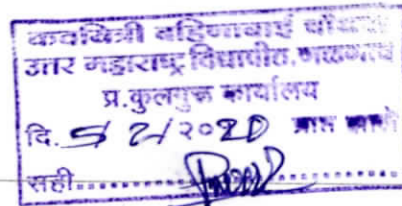 कवयित्री बहिणाबाई चौधरी
उत्तर महाराष्ट्र विद्यापीठ, जळगाव
प्र.कुलगुरू कार्यालय
दि. 5/2/2020 प्राप्त झाले
सही